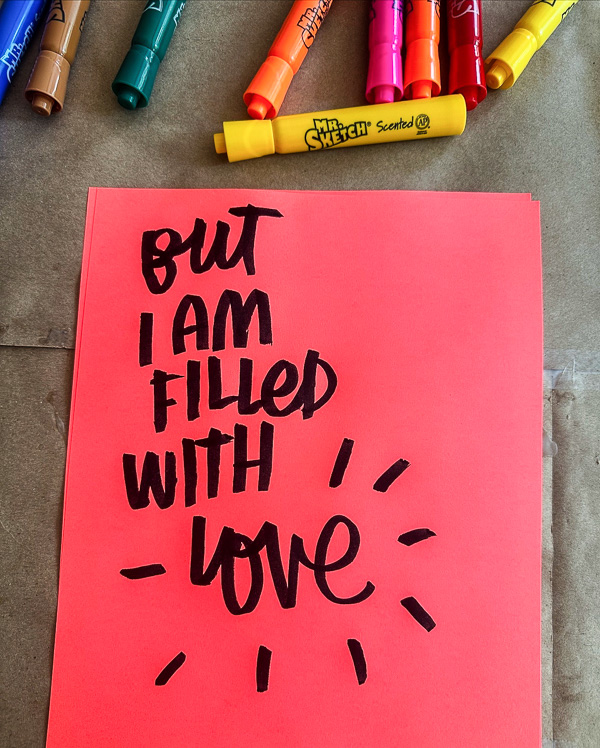 MR.
SKETCH® Scented AP
But
I AM
FILLED
WITH
Love